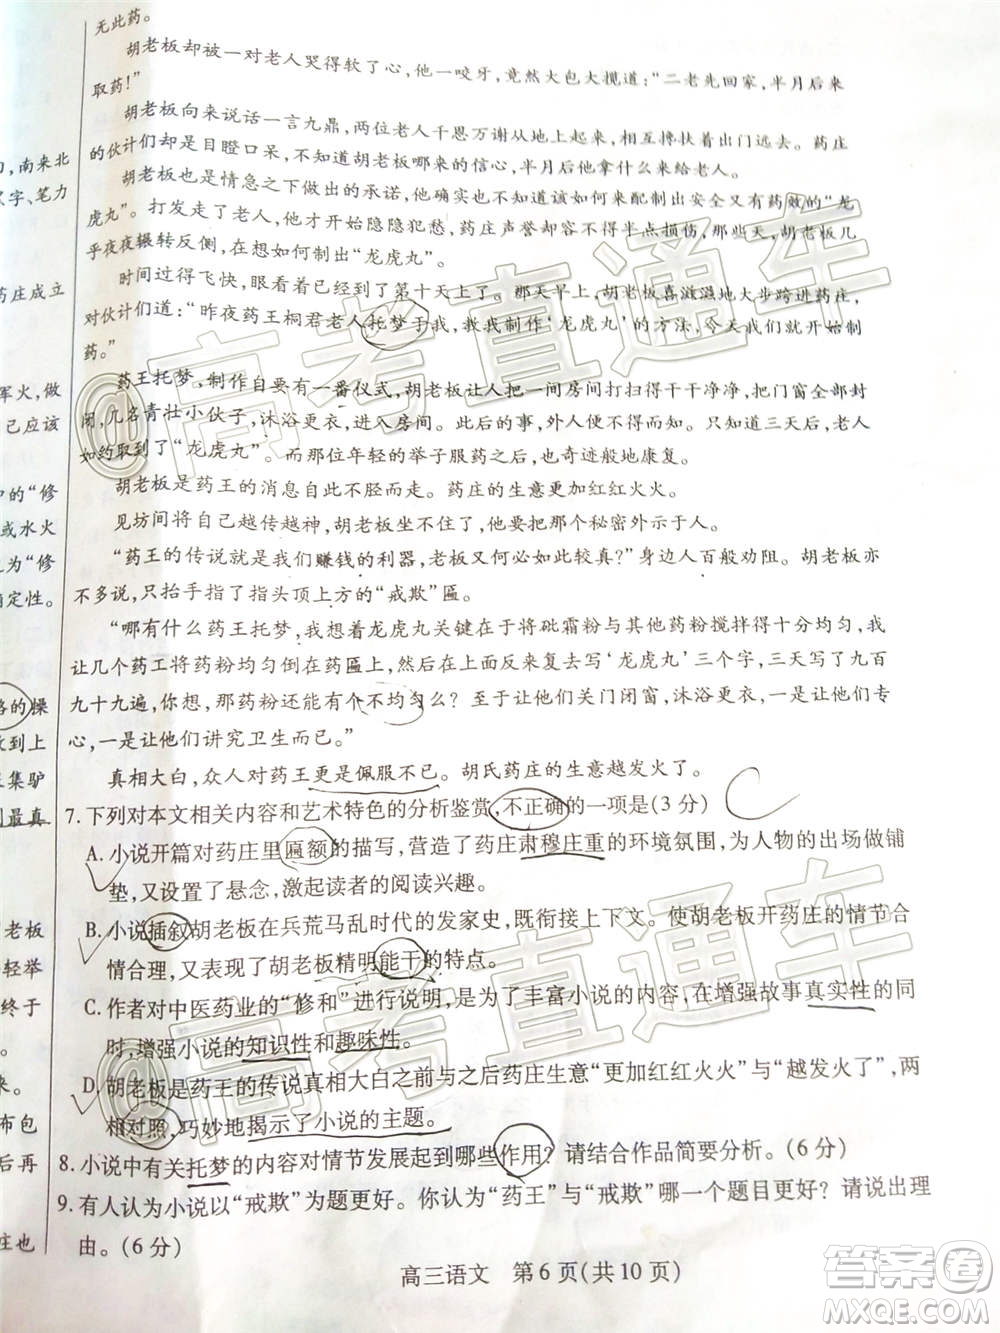 无此药。
胡老板却被一对老人哭得软了心，他一咬牙，竟然大包大揽道：“二老先回家，半月后来
取药！”
胡老板向来说话一言九鼎，两位老人千恩万谢从地上起来，相互搀扶着出门远去。药庄
的伙计们却是目瞪口呆，不知道胡老板哪来的信心，半月后他拿什么来给老人。
胡老板也是情急之下做出的承诺，他确实也不知道该如何来配制出安全又有药效的“龙
虎丸”。打发走了老人，他才开始隐隐犯愁，药庄声誉却容不得半点损伤，那些天，胡老板几
乎夜夜辗转反侧，在想如何制出“龙虎丸”。
时间过得飞快，眼看着已经到了第十天上了。那天早上，胡老板喜滋滋地大步跨进药庄，
对伙计们道：“昨夜药王桐君老人托梦于我，教我制作‘龙虎丸’的方法，今天我们就开始制
药。”
药王托梦，制作自要有一番仪式，胡老板让人把一间房间打扫得干干净净，把门窗全部封
闭，几名青壮小伙子，沐浴更衣，进入房间。此后的事，外人都不知道了。只知道三天后，老人
如约取到了“龙虎丸”，而那位年轻的举子服药之后，也奇迹般地康复。
胡老板是药王的消息自此不胫而走。药庄的生意更加红红火火。
见坊间将自己越传越神，胡老板坐不住了，他要将那个秘密外示于人。
“药王的传说就是我们赚钱的利器，老板又何必如此较真？”身边人百般劝阻。胡老板亦
不多说，只抬手指了指头顶上方的“戒欺”匾。
“哪有什么药王托梦，我想着龙虎丸关键在于将砒霜粉与其他药粉搅拌得十分均匀，我
让几个药工将药粉均匀倒在药匾上，然后用木棍在上面写‘龙虎丸’三个字，三天写了九百
九十九遍，你想，那药粉还能有个不均匀么？至于让他们关门闭窗，沐浴更衣，一是让他们专
心，一是让他们讲究卫生而已。”
真相大白，众人对药王更是佩服不已。胡氏药庄的生意越发火了。
7.下列对本文相关内容和艺术特色的分析鉴赏，不正确的一项是(3分)
A.小说开篇对药庄里匾额的描写，营造了药庄肃穆庄重的环境氛围，为人物的出场做铺
垫，又设置了悬念，激起读者的阅读兴趣。
B.小说插叙胡老板在兵荒马乱时代的发家史，既衔接上下文。使胡老板开药庄的情节合
情合理，又表现了胡老板精明能干的特点。
C.作者对中医药业的“修和”进行说明，是为了丰富小说的内容，在增强故事真实性的同
时，增强小说的知识性和趣味性。
D.胡老板是药王的传说真相大白之前与之后药庄生意“更加红红火火”与“越发火了”，两
相对照，巧妙地揭示了小说的主题。
8.小说中有关托梦的内容对情节发展起到哪些作用？请结合作品简要分析。(6分)
9.有人认为小说以“戒欺”为题更好。你认为“药王”与“戒欺”哪一个题目更好？请说出理
由。(6分)
高三语文 第6页(共10页)
，南来北
汉字、笔力
药庄成立
军火，做
己应该
中的“修
或水火
为“修
确定性。
格的操
收到上
集驴
最真
老板
轻举
终于
。
来。
布包
后再
庄也
@高考直通车
@高考直通车
答案圈
MXQE.COM